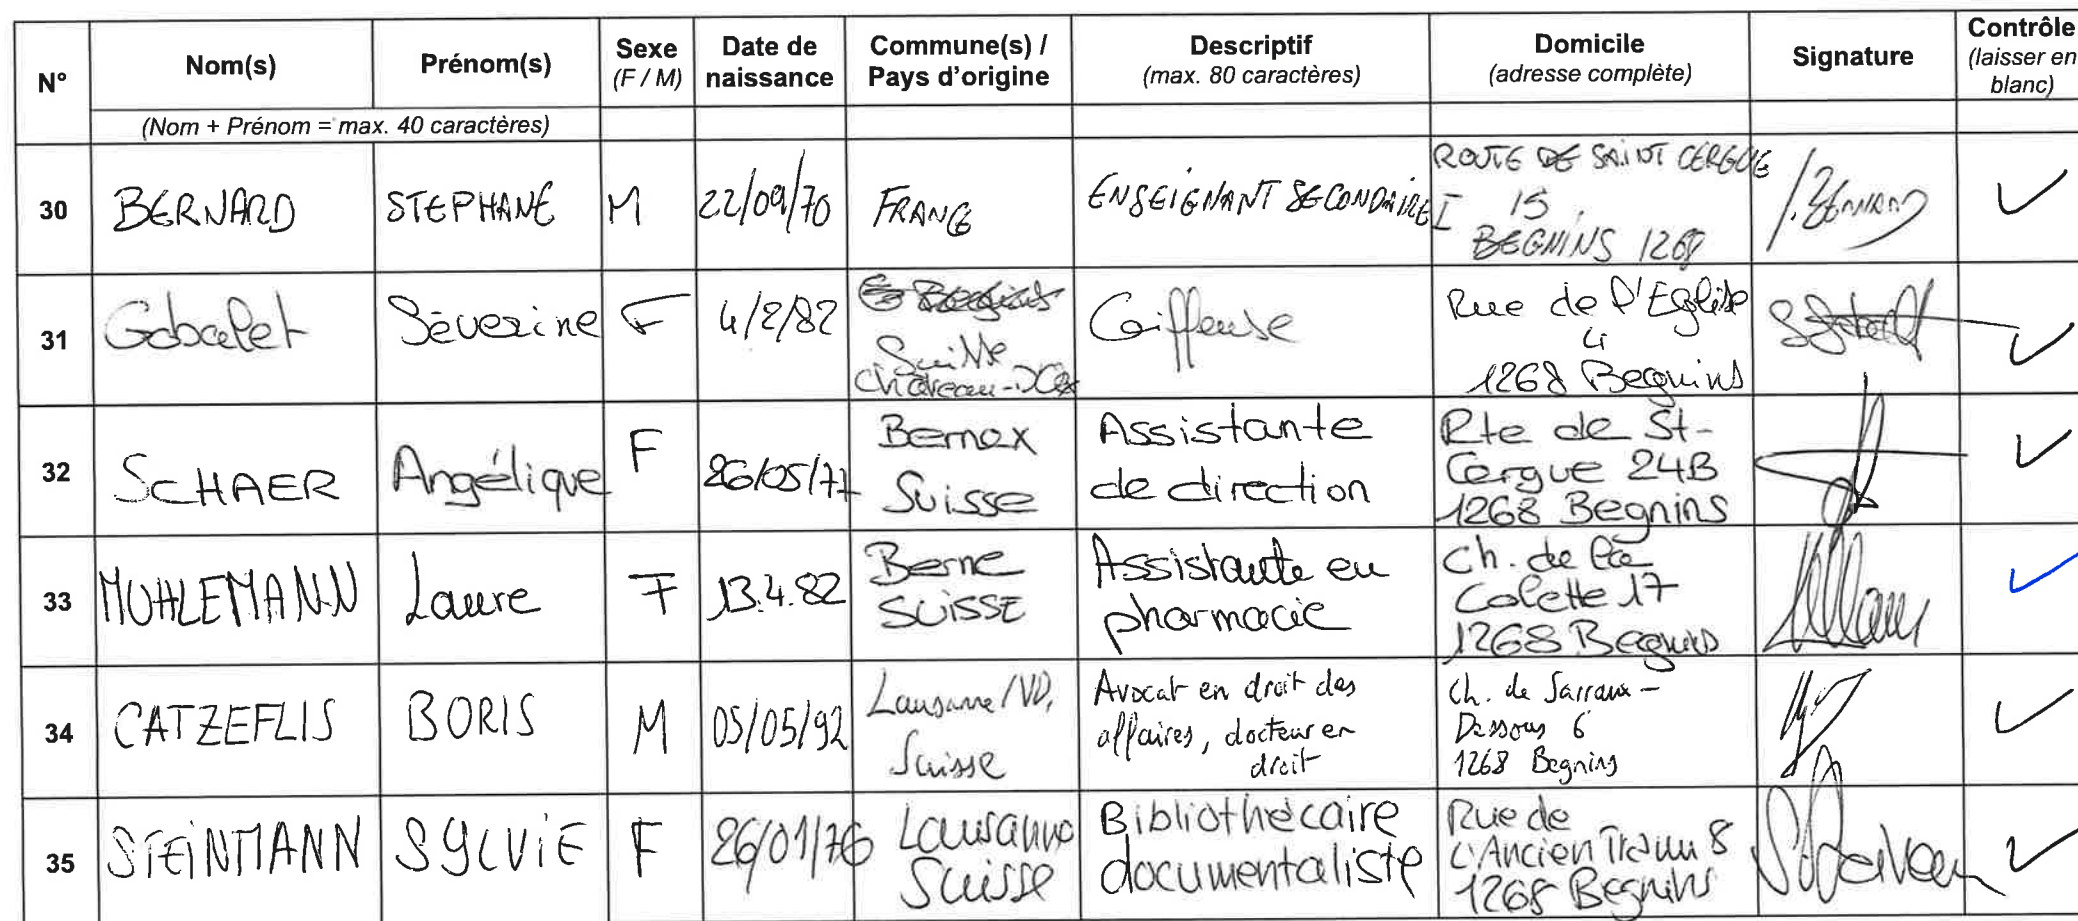 N° Nom(s) Prénom(s) Sexe (F / M) Date de naissance Commune(s) / Pays d'origine Descriptif (max. 80 caractères) Domicile (adresse complète) Signature Contrôle (laisser en blanc)
(Nom + Prénom = max. 40 caractères)
30 BERNARD STEPHANE M 22/09/70 FRANCE ENSEIGNANT SECONDAIRE I ROUTE DE SAINT CERGUE
15
BEGNINS 1268
31 Gabalet Séverine F 4/2/82 Suisse
Château-D'Œx Coiffeuse Rue de l'Eglise
4
1268 Begnins
32 SCHAER Angélique F 26/05/77 Bernex
Suisse Assistante
de direction Rte de St-
Cergue 24B
1268 Begnins
33 MUHLEMANN Laure F 13.4.82 Berne
SUISSE Assistante en
pharmacie Ch. de la
Colette 17
1268 Begnins
34 CATZEFLIS BORIS M 05/05/92 Lausanne/VD,
Suisse Avocat en droit des
affaires, docteur en
droit Ch. de Sarraux-
Dessous 6
1268 Begnins
35 STEINMANN SYLVIE F 26/01/76 Lausanne
Suisse Bibliothécaire
documentaliste Rue de
L'Ancien Tram 8
1268 Begnins